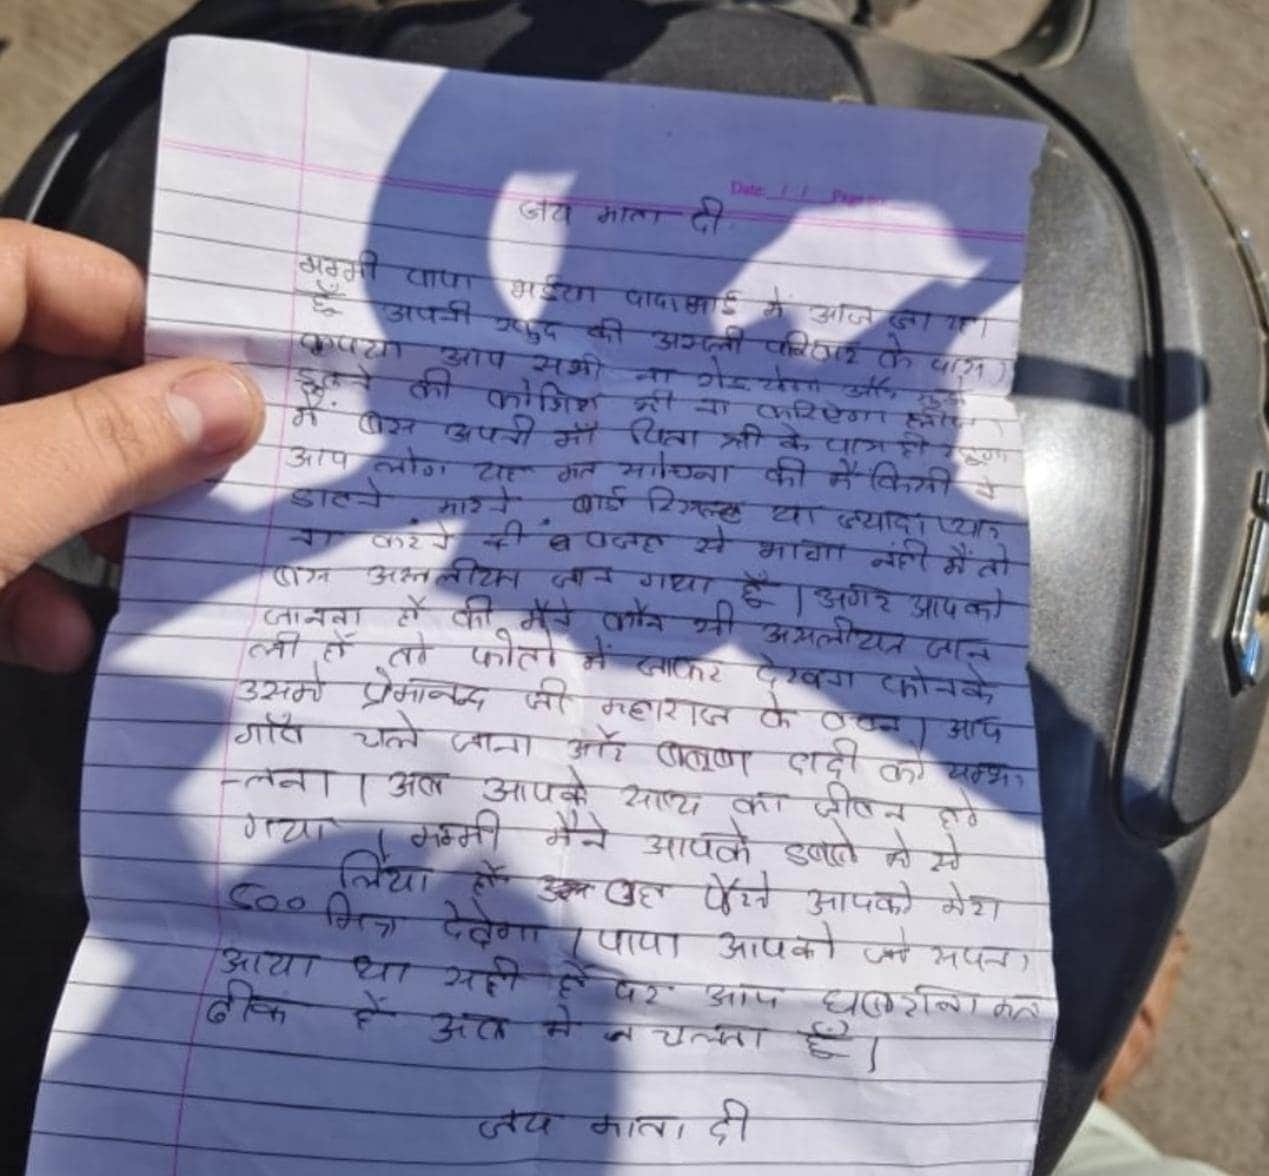 Date: / / Page
जय माता दी
मम्मी पापा भईया दादा में आज जा रहा
हूँ अपनी खुद की असली परिवार के पास।
कृपया आप सभी ना और मुझे
ढूंढने की कोशिश भी ना करिएगा
में बस अपनी माँ पिता श्री के पास ही रहूंगा
आप लोग यह मत सोचिना की में किसी ने
डाटने मारने या ज्यादा प्यार
ना करने की वजह से भागा नहीं मैं तो
बस असलीयत जान गया हूँ। अगर आपको
जानना हैं की मैंने कौन सी असलीयत जान
ली हैं तो फोतो में जाकर देखना फोनके
उसमे प्रेमानन्द जी महाराज के वचन। आप
गाँव चले जाना और दादी को सम्भा
-लना। अब आपके साथ का जीवन हो
गया। मम्मी मैंने आपके डब्बे मे से
500 लिया हैं वह पैसे आपको मेरा
मित्र देदेगा। पापा आपको जो सपना
आया था सही हैं पर आप घबराना मत
ठीक हैं अब मे चलता हूँ।
जय माता दी